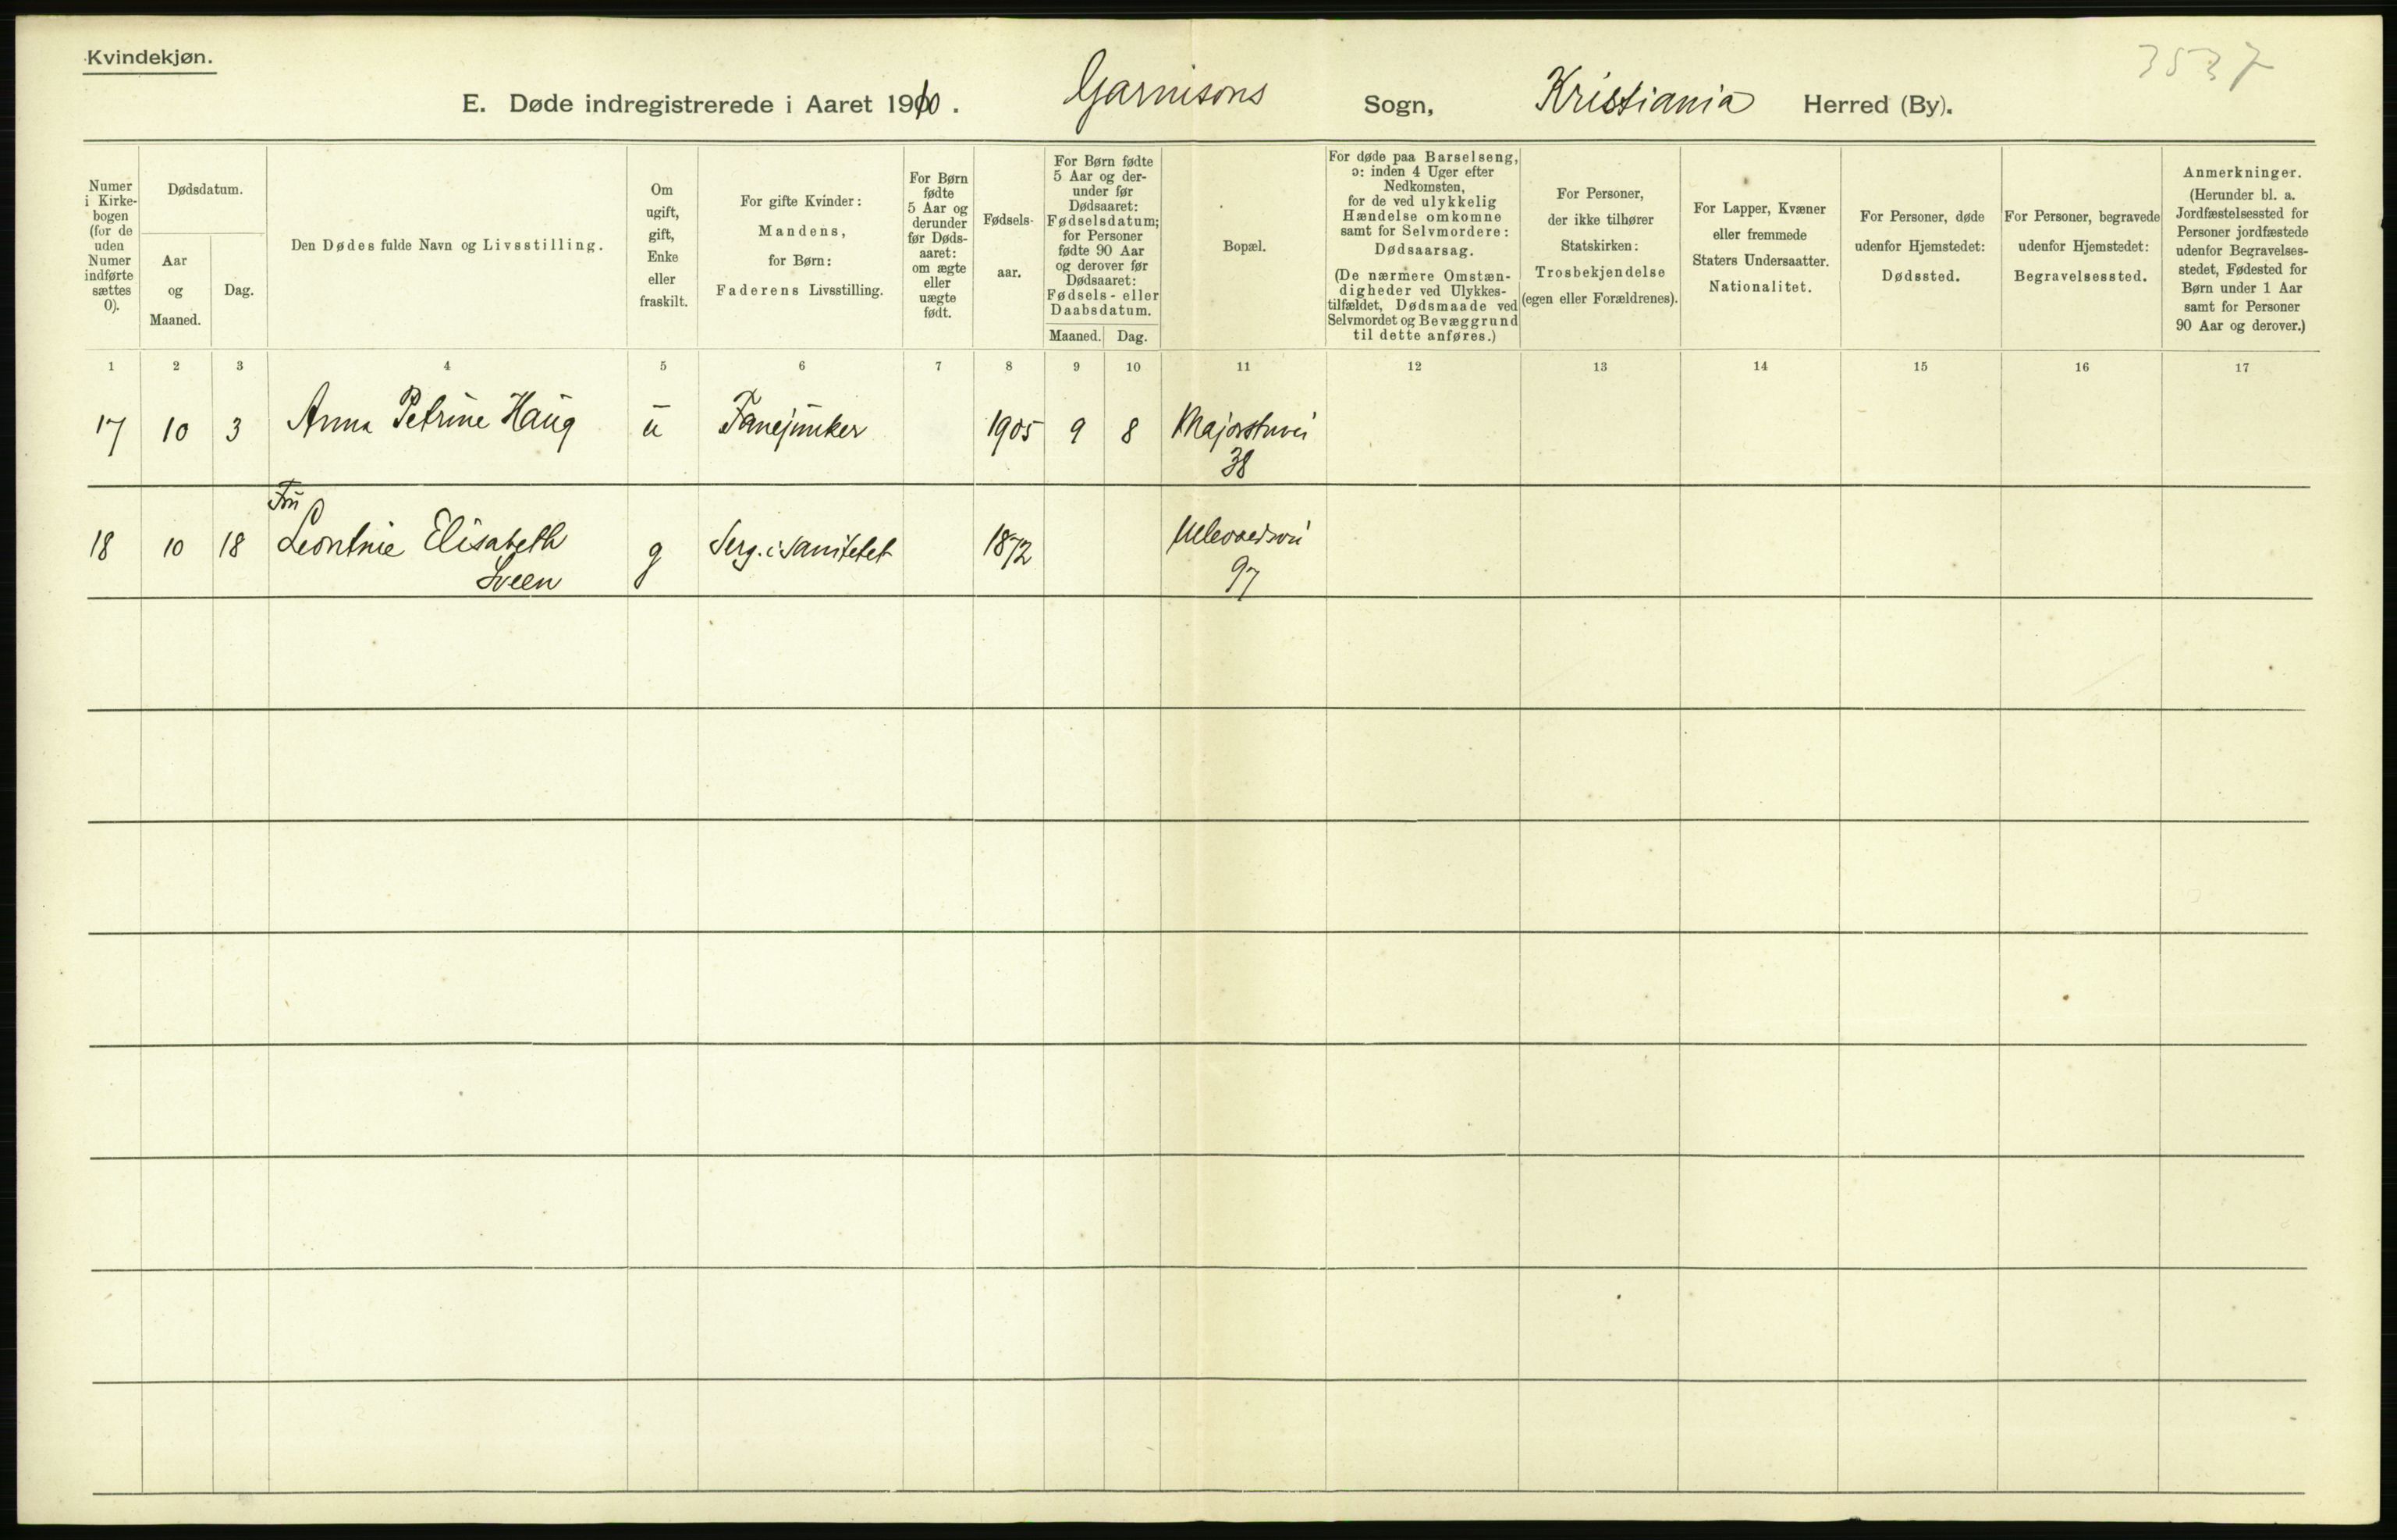 Kvindekjøn.
3537
E. Døde indregistrerede i Aaret 1910. Garnisons Sogn, Kristiania Herred (By).
Numer i Kirke-bogen (for de uden Numer indførte sættes 0).
Dødsdatum.
Aar og Maaned.
Dag.
Den Dødes fulde Navn og Livsstilling.
Om ugift, gift, Enke eller fraskilt.
For gifte Kvinder: Mandens, for Børn: Faderens Livsstilling.
For Børn fødte 5 Aar og derunder før Døds-aaret: om ægte eller uægte født.
Fødsels-aar.
For Børn fødte 5 Aar og der-under før Dødsaaret: Fødselsdatum; for Personer fødte 90 Aar og derover før Dødsaaret: Fødsels- eller Daabsdatum.
Maaned. Dag.
Bopæl.
For døde paa Barselseng, ɔ: inden 4 Uger efter Nedkomsten, for de ved ulykkelig Hændelse omkomne samt for Selvmordere: Dødsaarsag.
(De nærmere Omstæn-digheder ved Ulykkes-tilfældet, Dødsmaade ved Selvmordet og Bevæggrund til dette anføres.)
For Personer, der ikke tilhører Statskirken: Trosbekjendelse (egen eller Forældrenes).
For Lapper, Kvæner eller fremmede Staters Undersaatter. Nationalitet.
For Personer, døde udenfor Hjemstedet: Dødssted.
For Personer, begravede udenfor Hjemstedet: Begravelsessted.
Anmerkninger.
(Herunder bl. a. Jordfæstelsessted for Personer jordfæstede udenfor Begravelses-stedet, Fødested for Børn under 1 Aar samt for Personer 90 Aar og derover.)
1 2 3 4 5 6 7 8 9 10 11 12 13 14 15 16 17
17 10 3 Anna Petrine Haug u Fanejunker 1905 9 8 Majorstuvei
38
Fru
18 10 18 Leontine Elisabeth g Serg. i Sanitetet 1872 Ullevoldsvei
Sveen 97